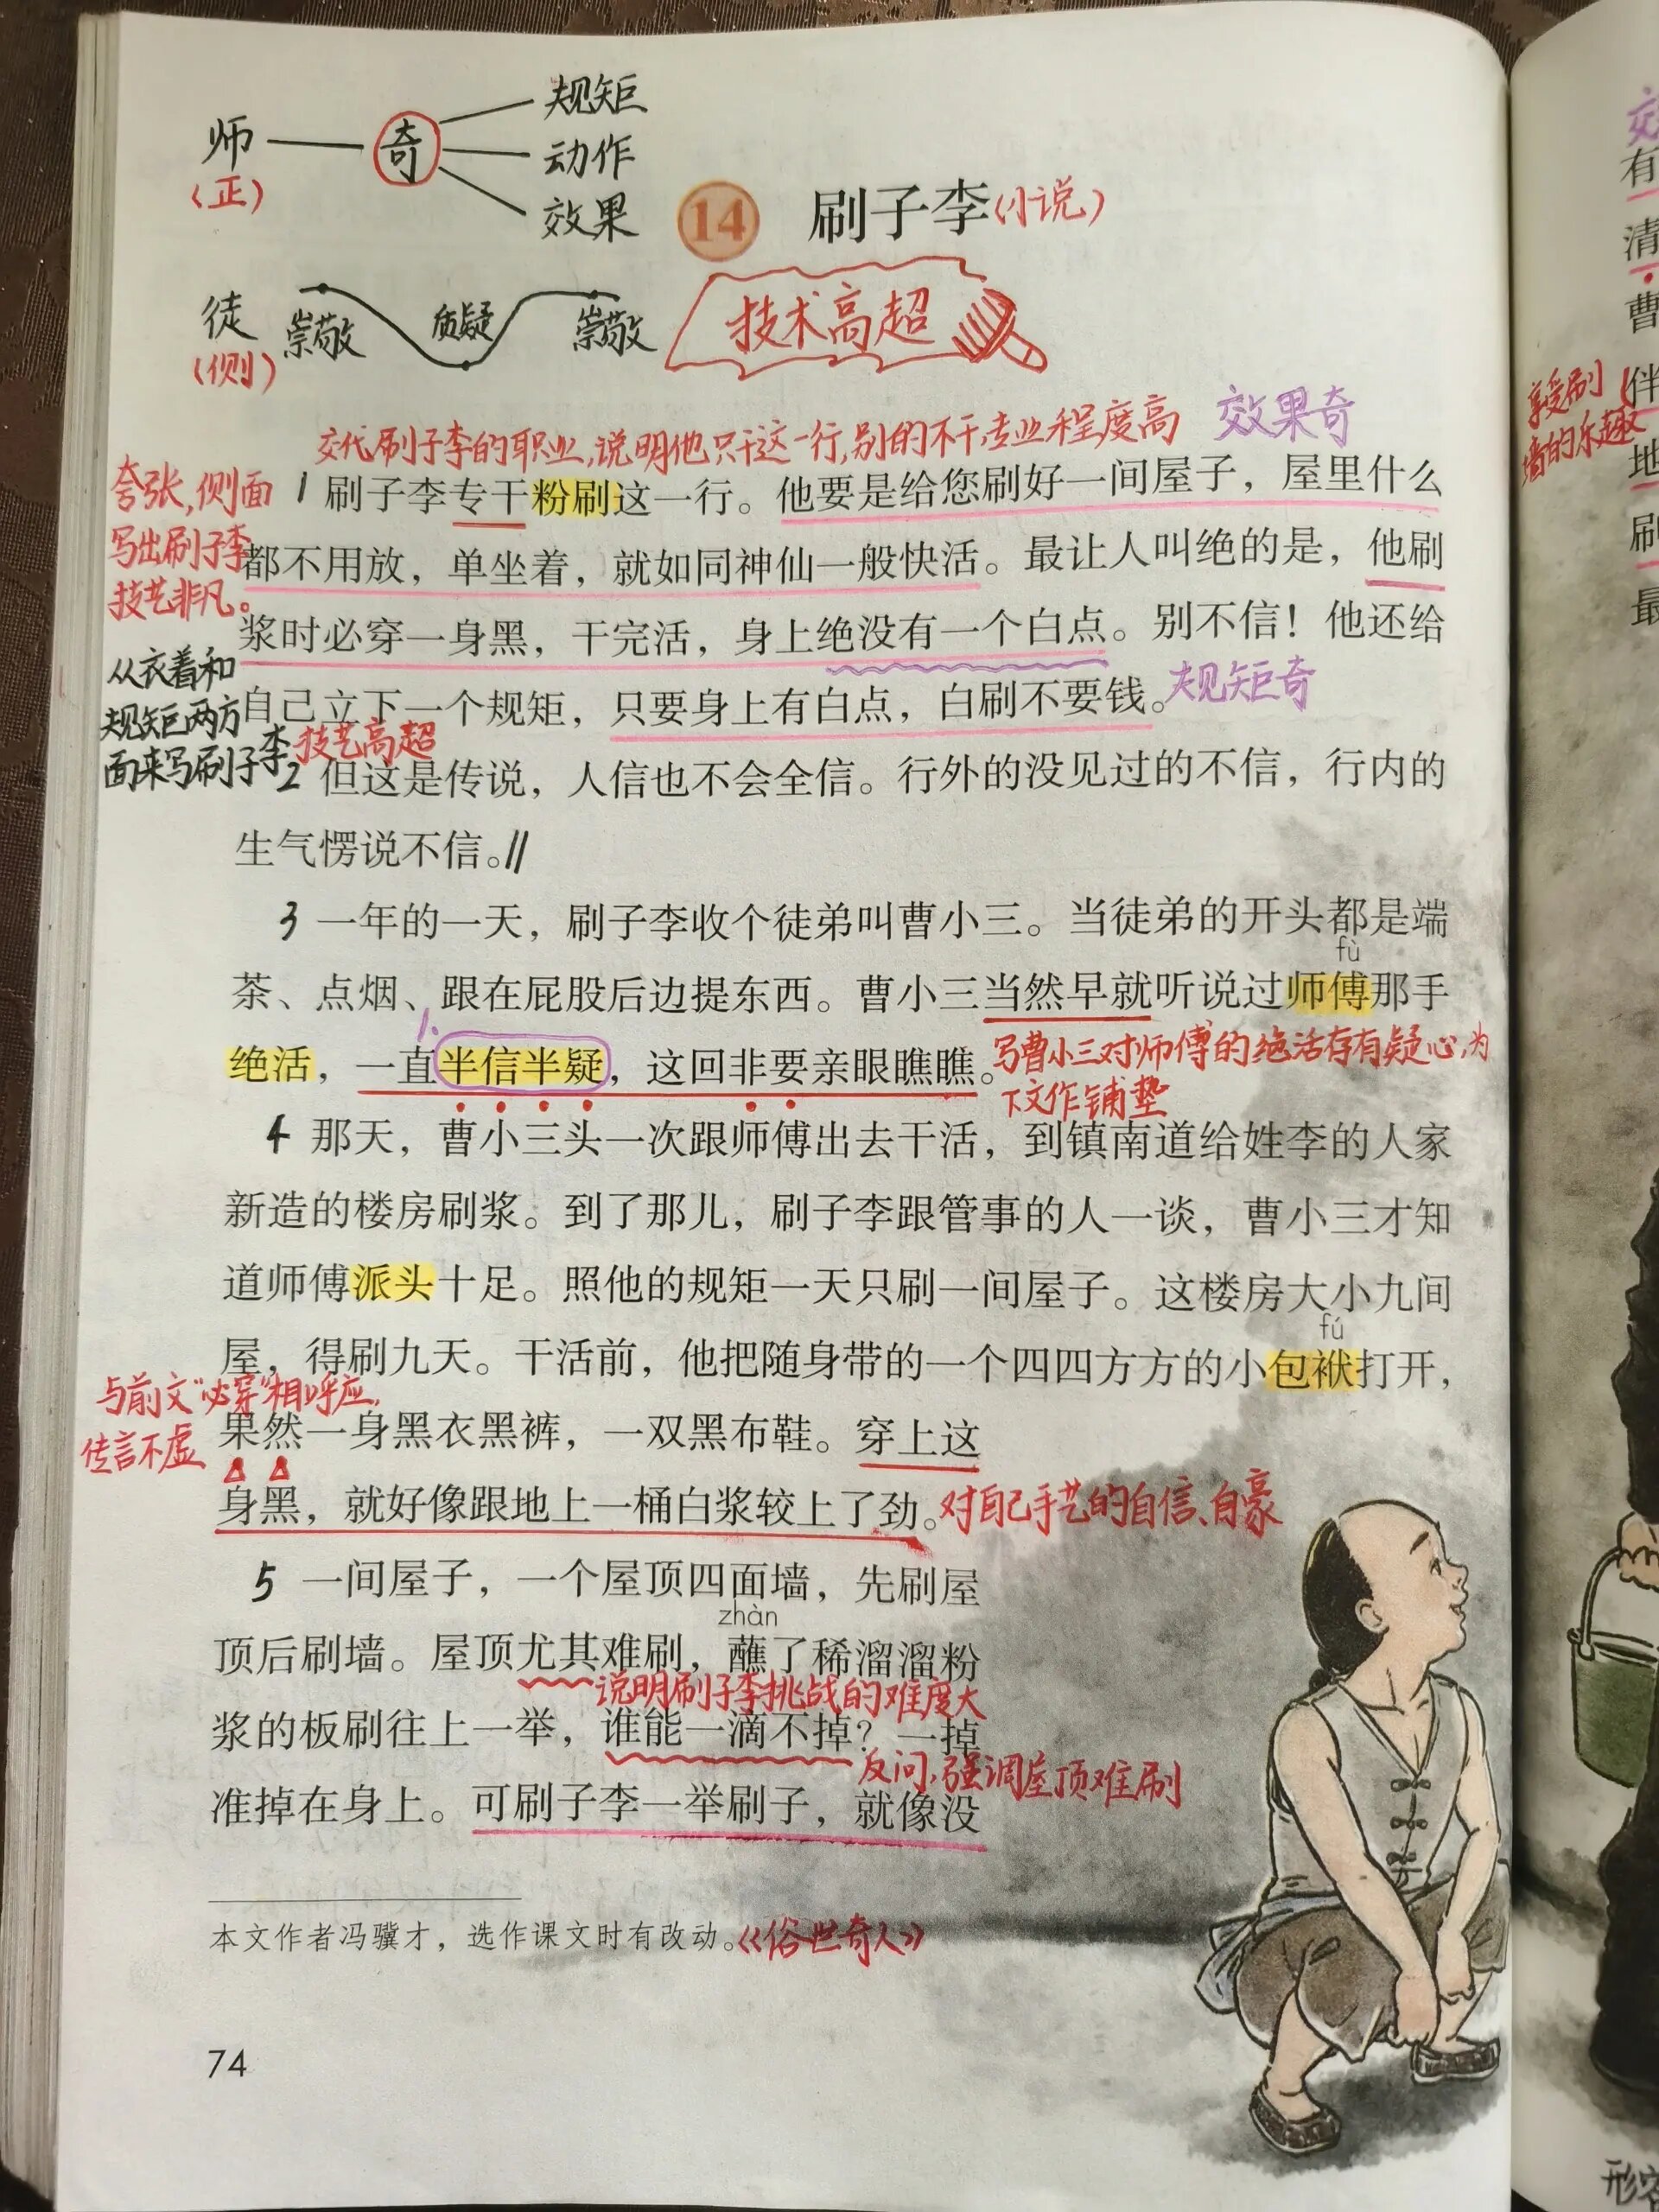 规矩
师 奇 动作
(正)
效果
14 刷子李(小说)
徒 崇敬 质疑 崇敬 技术高超
(侧)
交代刷子李的职业,说明他只干这一行,别的不干,专业程度高 效果奇
夸张,侧面
写出刷子李
技艺非凡。
1 刷子李专干粉刷这一行。他要是给您刷好一间屋子，屋里什么
都不用放，单坐着，就如同神仙一般快活。最让人叫绝的是，他刷
浆时必穿一身黑，干完活，身上绝没有一个白点。别不信！他还给
自己立下一个规矩，只要身上有白点，白刷不要钱。规矩奇
从衣着和
规矩两方
面来写刷子李技艺高超
2 但这是传说，人信也不会全信。行外的没见过的不信，行内的
生气愣说不信。//
3 一年的一天，刷子李收个徒弟叫曹小三。当徒弟的开头都是端
fù
茶、点烟、跟在屁股后边提东西。曹小三当然早就听说过师傅那手
1.
绝活，一直半信半疑，这回非要亲眼瞧瞧。
写曹小三对师傅的绝活存有疑心,为
下文作铺垫
4 那天，曹小三头一次跟师傅出去干活，到镇南道给姓李的人家
新造的楼房刷浆。到了那儿，刷子李跟管事的人一谈，曹小三才知
道师傅派头十足。照他的规矩一天只刷一间屋子。这楼房大小九间
fú
屋，得刷九天。干活前，他把随身带的一个四四方方的小包袱打开，
与前文"必穿"相呼应,
传言不虚
果然一身黑衣黑裤，一双黑布鞋。穿上这
身黑，就好像跟地上一桶白浆较上了劲。对自己手艺的自信、自豪
5 一间屋子，一个屋顶四面墙，先刷屋
zhàn
顶后刷墙。屋顶尤其难刷，蘸了稀溜溜粉
说明刷子李挑战的难度大
浆的板刷往上一举，谁能一滴不掉？一掉
反问,强调屋顶难刷
准掉在身上。可刷子李一举刷子，就像没
本文作者冯骥才，选作课文时有改动。《俗世奇人》
74
效
有
清
曹
享受刷
墙的乐趣
伴
地
刷
最
形容